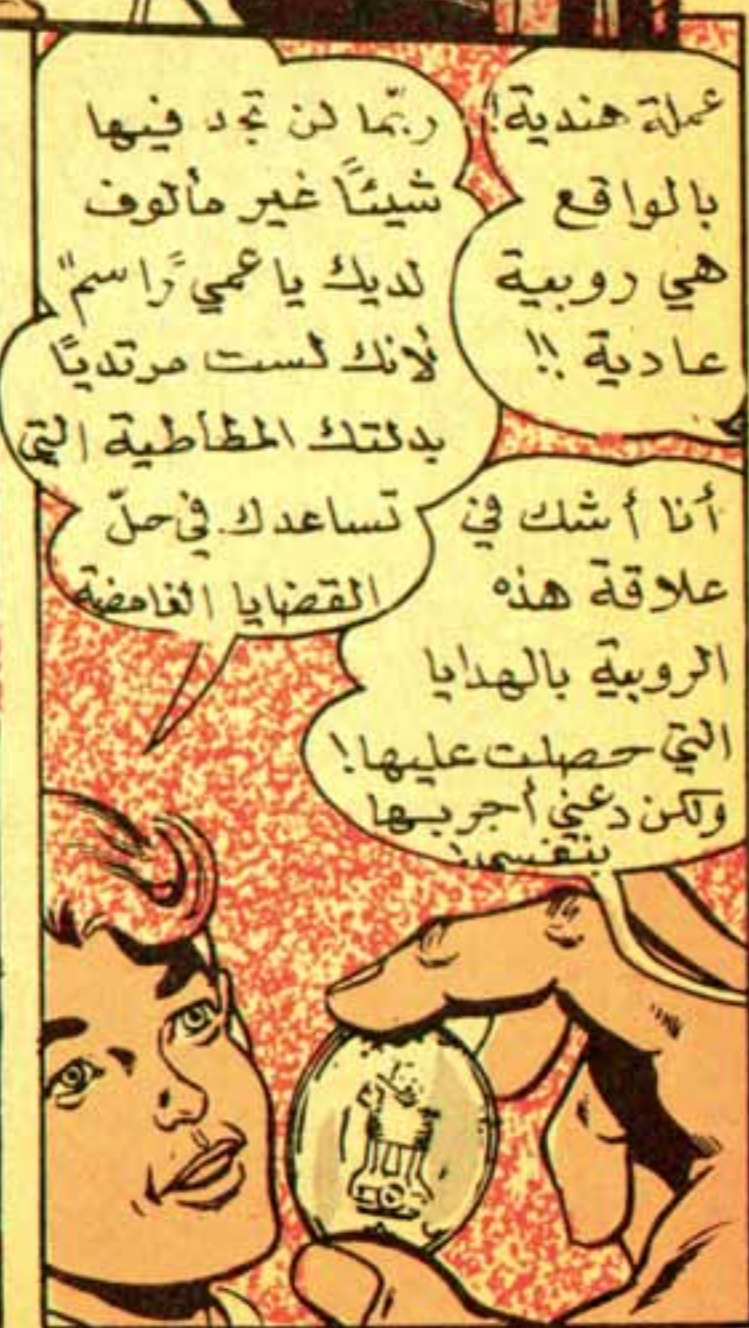 عملة هندية!
بالواقع
هي روبية
عادية !!
أنا أشك في
علاقة هذه
الروبية بالهدايا
التي حصلت عليها!
ولكن دعني أجربها
بنفسي
ربّما لن تجد فيها
شيئًا غير مألوف
لديك يا عمي "راسم"
لأنك لست مرتديًا
بدلتك المطاطية التي
تساعدك في حلّ
القضايا الغامضة